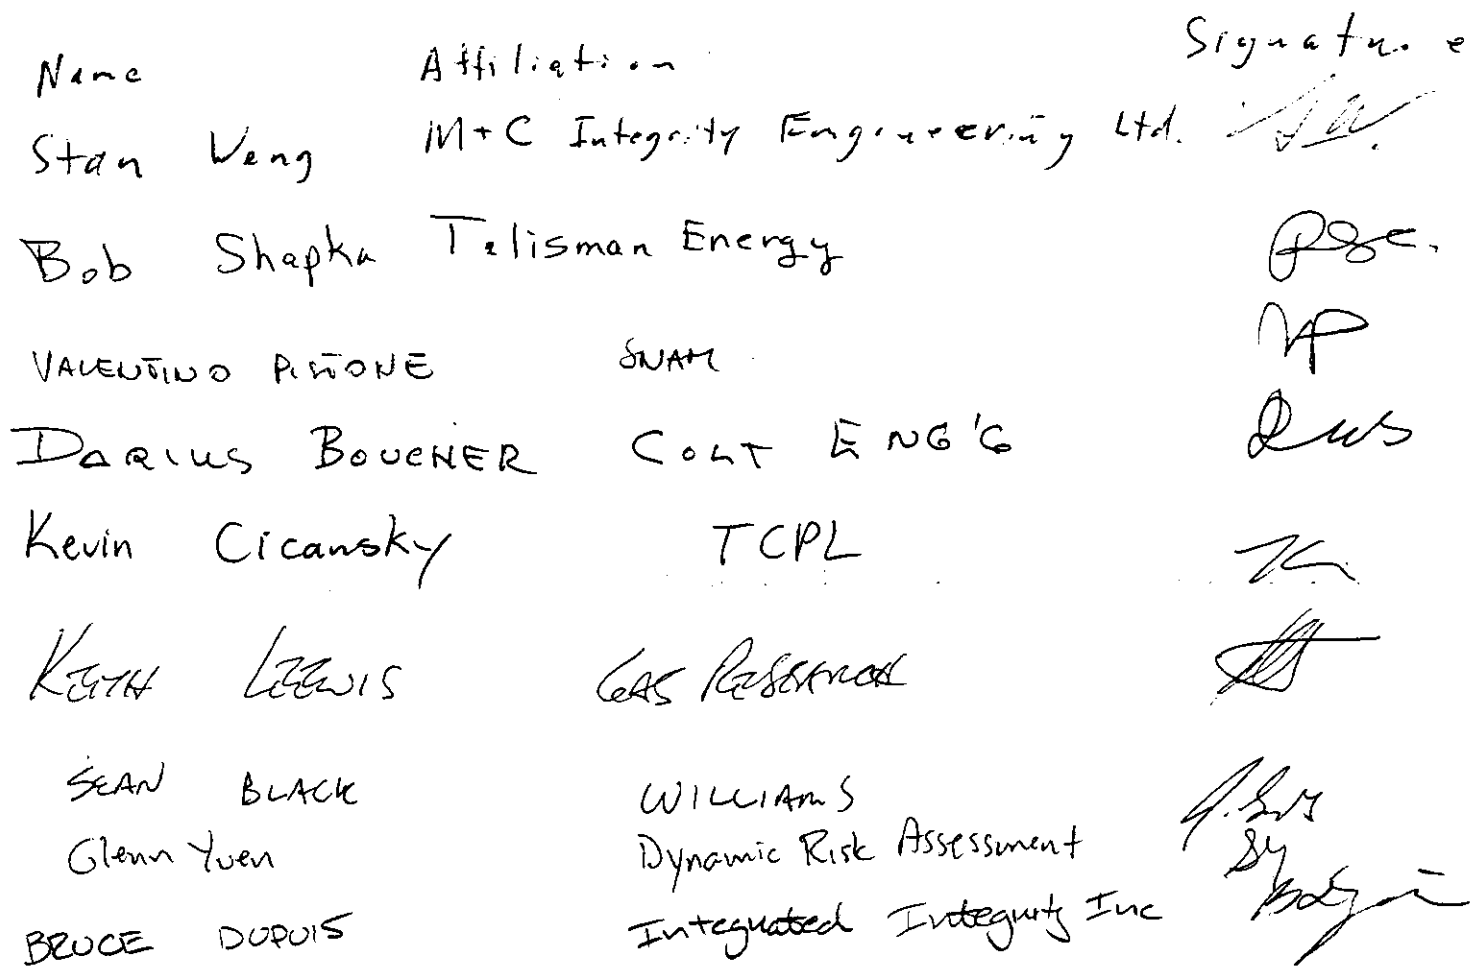 Name Affiliation Signature
Stan Weng M+C Integrity Engineering Ltd.
Bob Shapka Talisman Energy
VALENTINO PISTONE SNAM
DARIUS BOUCHER COLT ENG'G
Kevin Cicansky TCPL
KEITH LEEWIS GAS RESEARCH
SEAN BLACK WILLIAMS
Glenn Yuen Dynamic Risk Assessment
BRUCE DUPUIS Integrated Integrity Inc